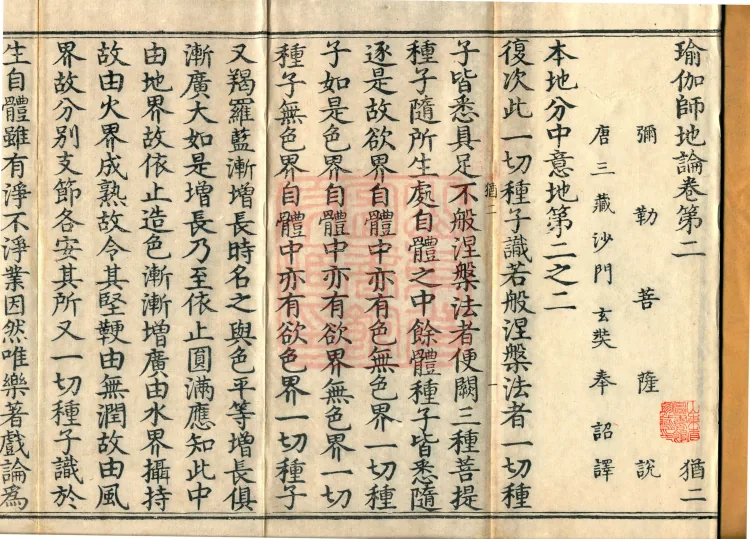 瑜伽師地論卷第二 猶二
彌勒菩薩說
唐三藏沙門玄奘奉詔譯
本地分中意地第二之二
復次此一切種子識若般涅槃法者一切種
子皆悉具足不般涅槃法者便闕三種菩提
猶二
種子隨所生處自體之中餘體種子皆悉隨
逐是故欲界自體中亦有色無色界一切種
子如是色界自體中亦有欲界無色界一切
種子無色界自體中亦有欲色界一切種子
又羯羅藍漸增長時名之與色平等增長俱
漸廣大如是增長乃至依止圓滿應知此中
由地界故依止造色漸漸增廣由水界攝持
故由火界成熟故令其堅鞕由無潤故由風
界故分別支節各安其所又一切種子識於
生自體雖有淨不淨業因然唯樂著戲論為